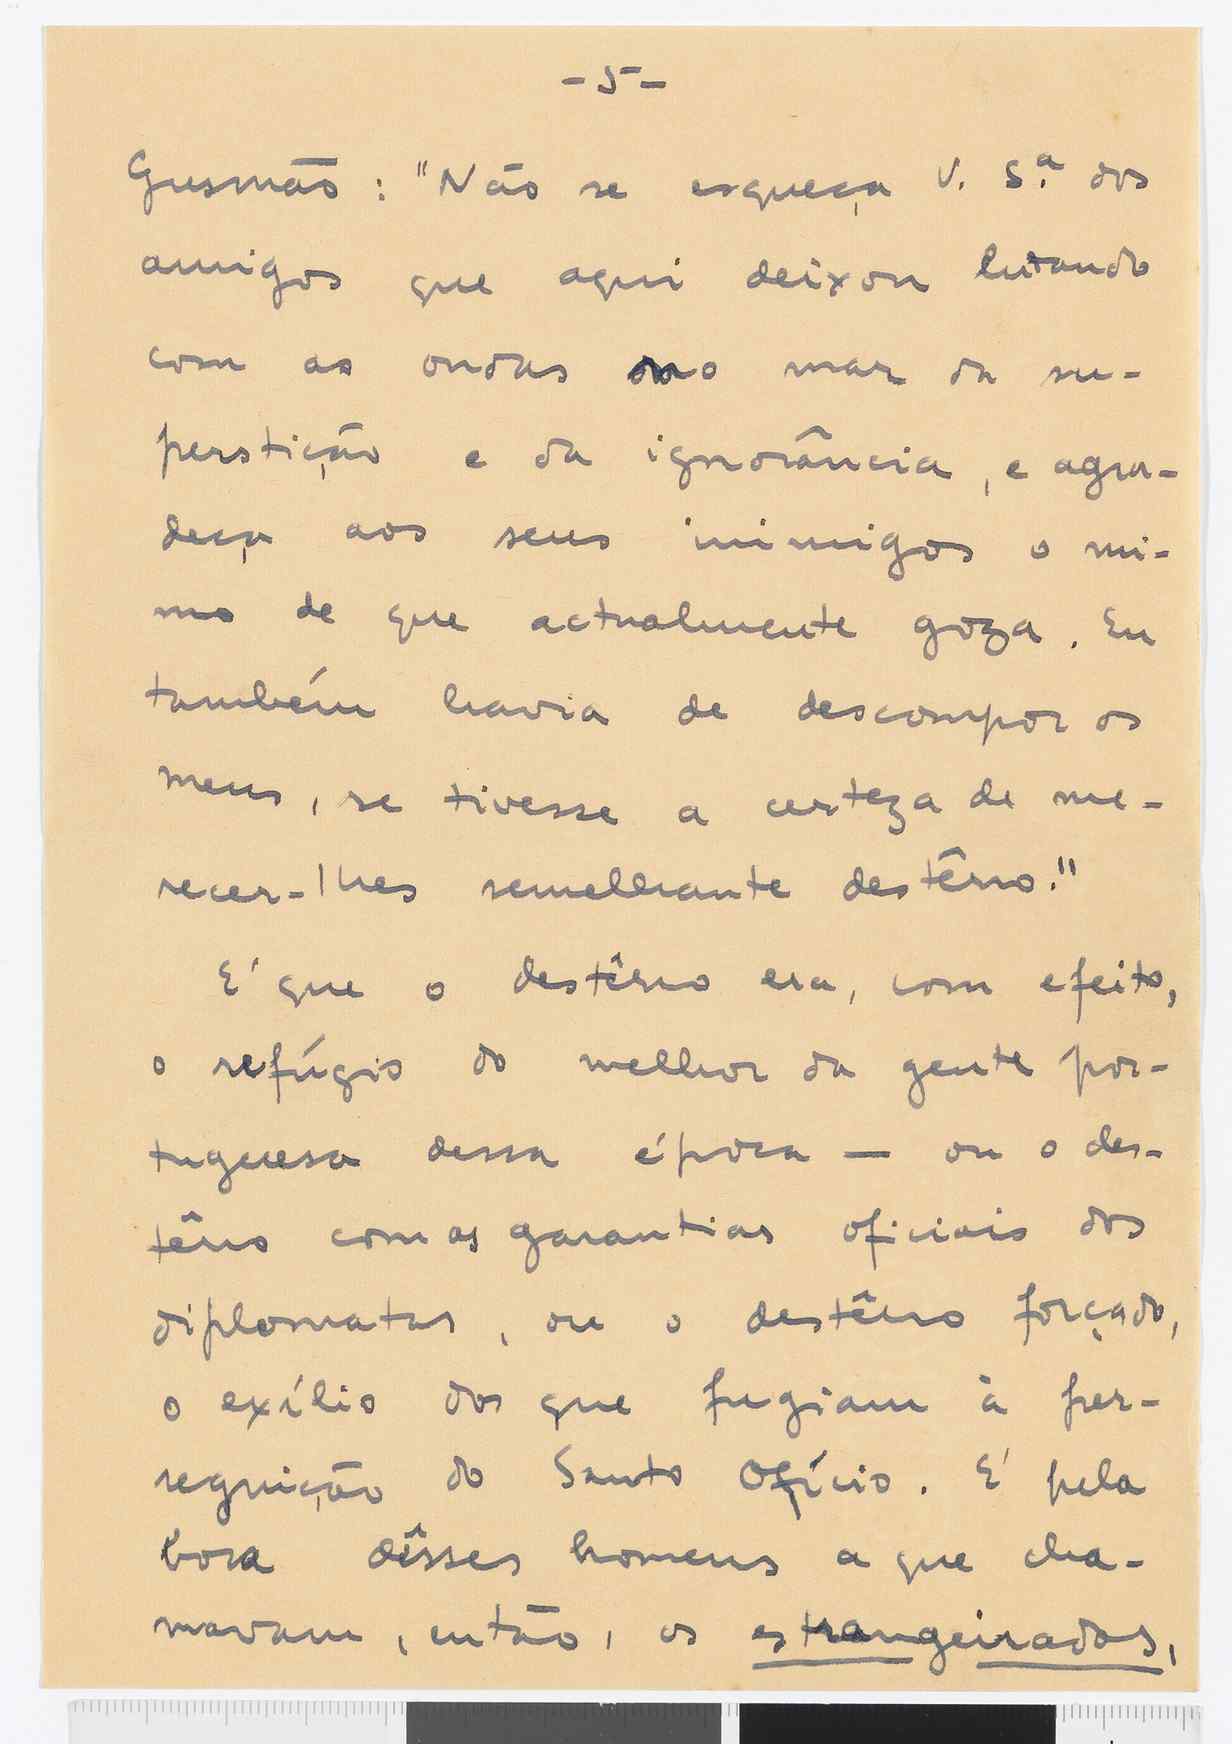 -5-
Gusmão: "Não se esqueça V. S.ª dos
amigos que aqui deixou lutando
com as ondas no mar da su-
perstição e da ignorância, e agra-
deça aos seus inimigos o mi-
mo de que actualmente goza. Eu
também havia de descompor os
meus, se tivesse a certeza de me-
recer-lhes semelhante destêrro."
E' que o destêrro era, com efeito,
o refúgio do melhor da gente por-
tuguesa dessa época — ou o des-
têrro com as garantias oficiais dos
diplomatas, ou o destêrro forçado,
o exílio dos que fugiam à per-
seguição do Santo Ofício. E' pela
boca dêsses homens a que cha-
mavam, então, os estrangeirados,